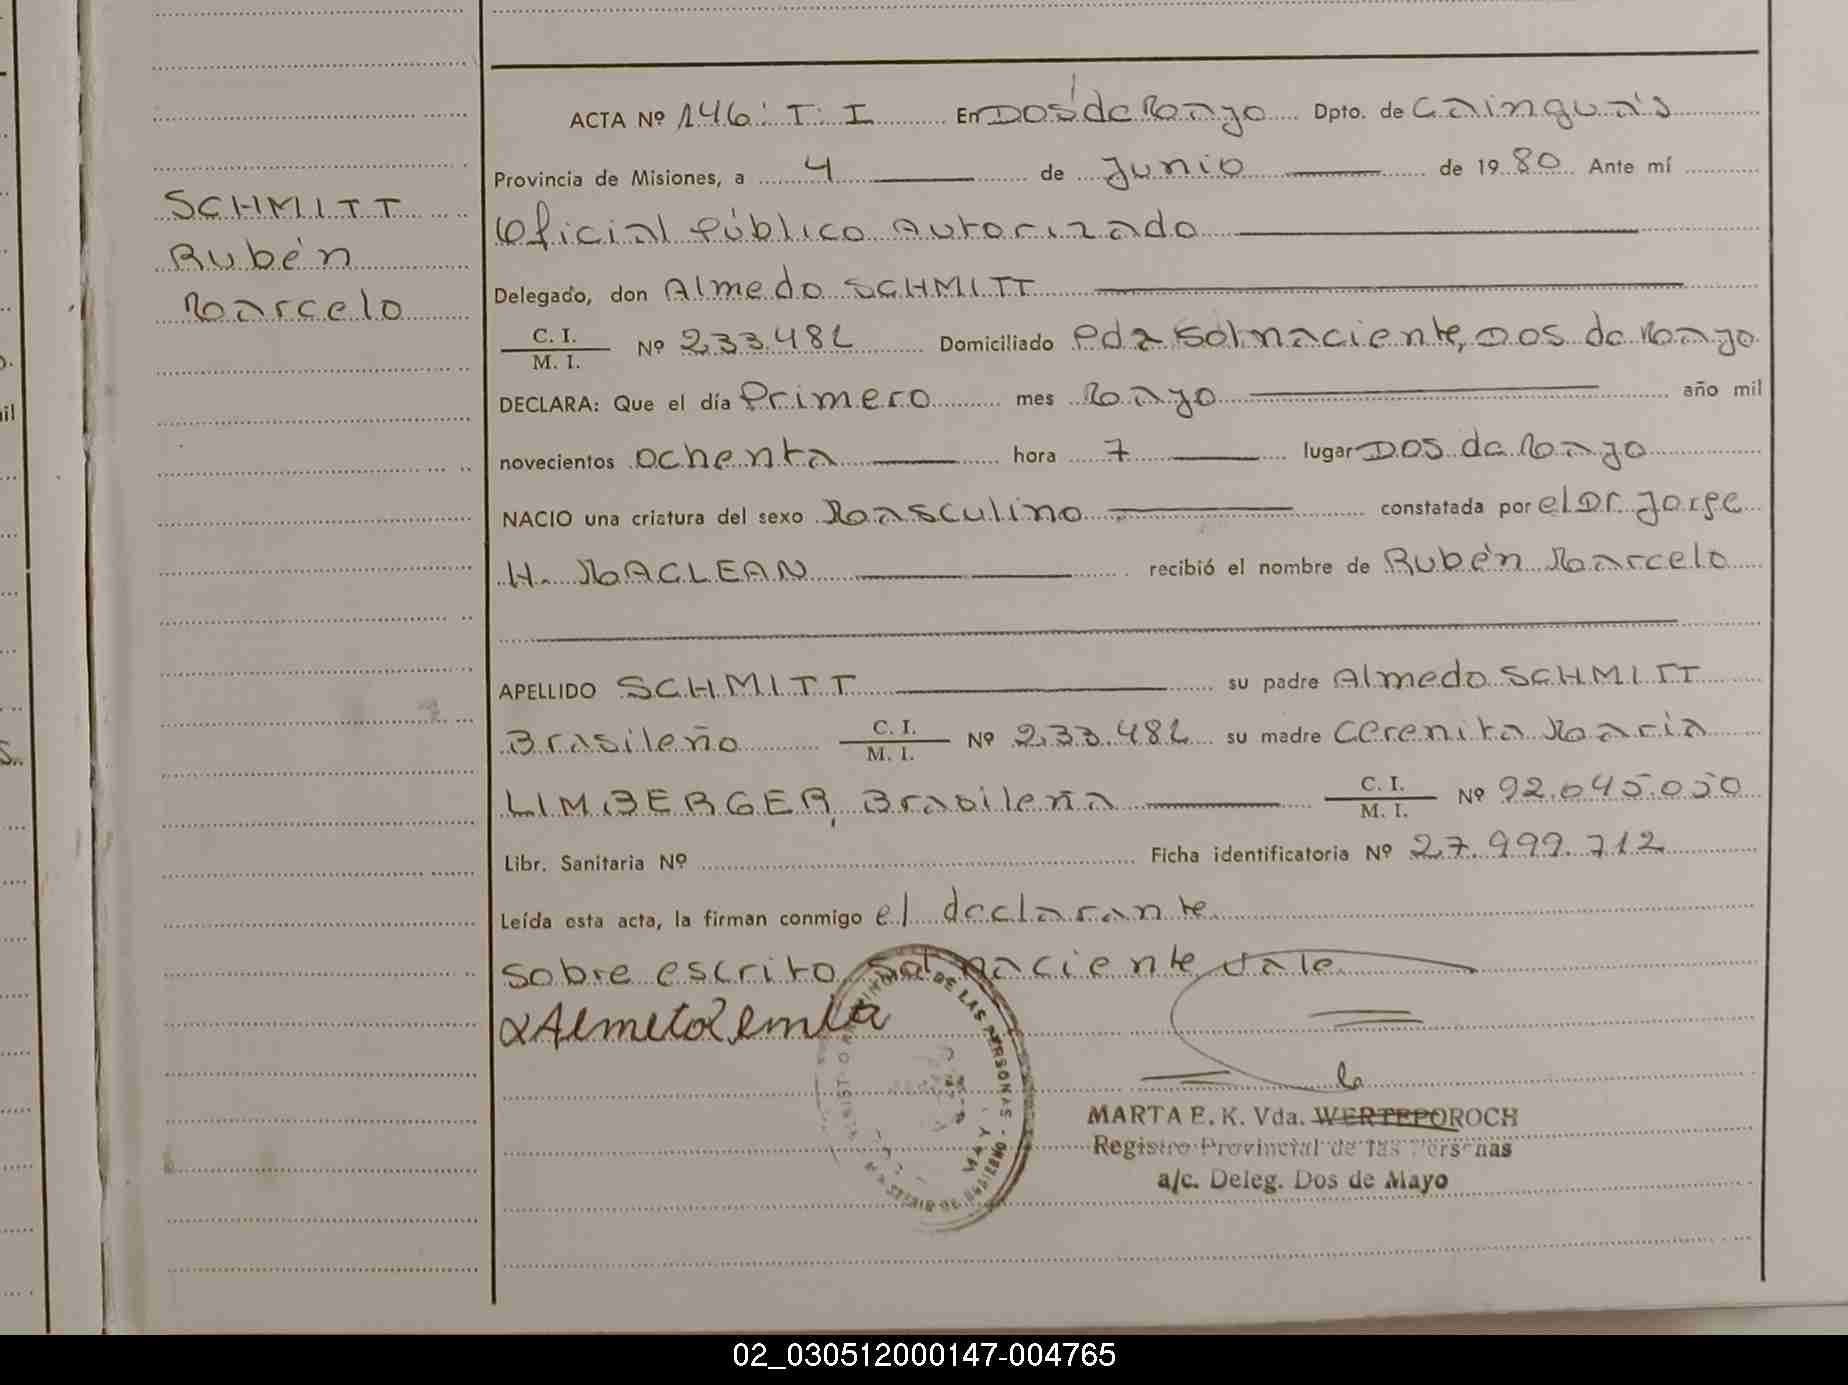 SCHMITT
Rubén
Marcelo
ACTA Nº 146: T: I En Dos de Mayo Dpto. de Cainguás
Provincia de Misiones, a 4 de Junio de 1980 Ante mí
Oficial Público Autorizado
Delegado, don Almedo SCHMITT
C. I.
M. I. Nº 233.482 Domiciliado Pda Sol naciente, Dos de Mayo
DECLARA: Que el día Primero mes Mayo año mil
novecientos ochenta hora 7 lugar Dos de Mayo
NACIO una criatura del sexo Masculino constatada por el Dr Jorge
H. MACLEAN recibió el nombre de Rubén Marcelo
APELLIDO SCHMITT su padre Almedo SCHMITT
Brasileño C. I.
M. I. Nº 233.482 su madre Cerenita Maria
LIMBERGER, Brasileña C. I.
M. I. Nº 92.045.050
Libr. Sanitaria Nº Ficha identificatoria Nº 27.999.712
Leída esta acta, la firman conmigo el declarante
Sobre escrito Sol naciente vale
MARTA E. K. Vda. WERTEPOROCH
Registro Provincial de las Personas
a/c. Deleg. Dos de Mayo
02_030512000147-004765